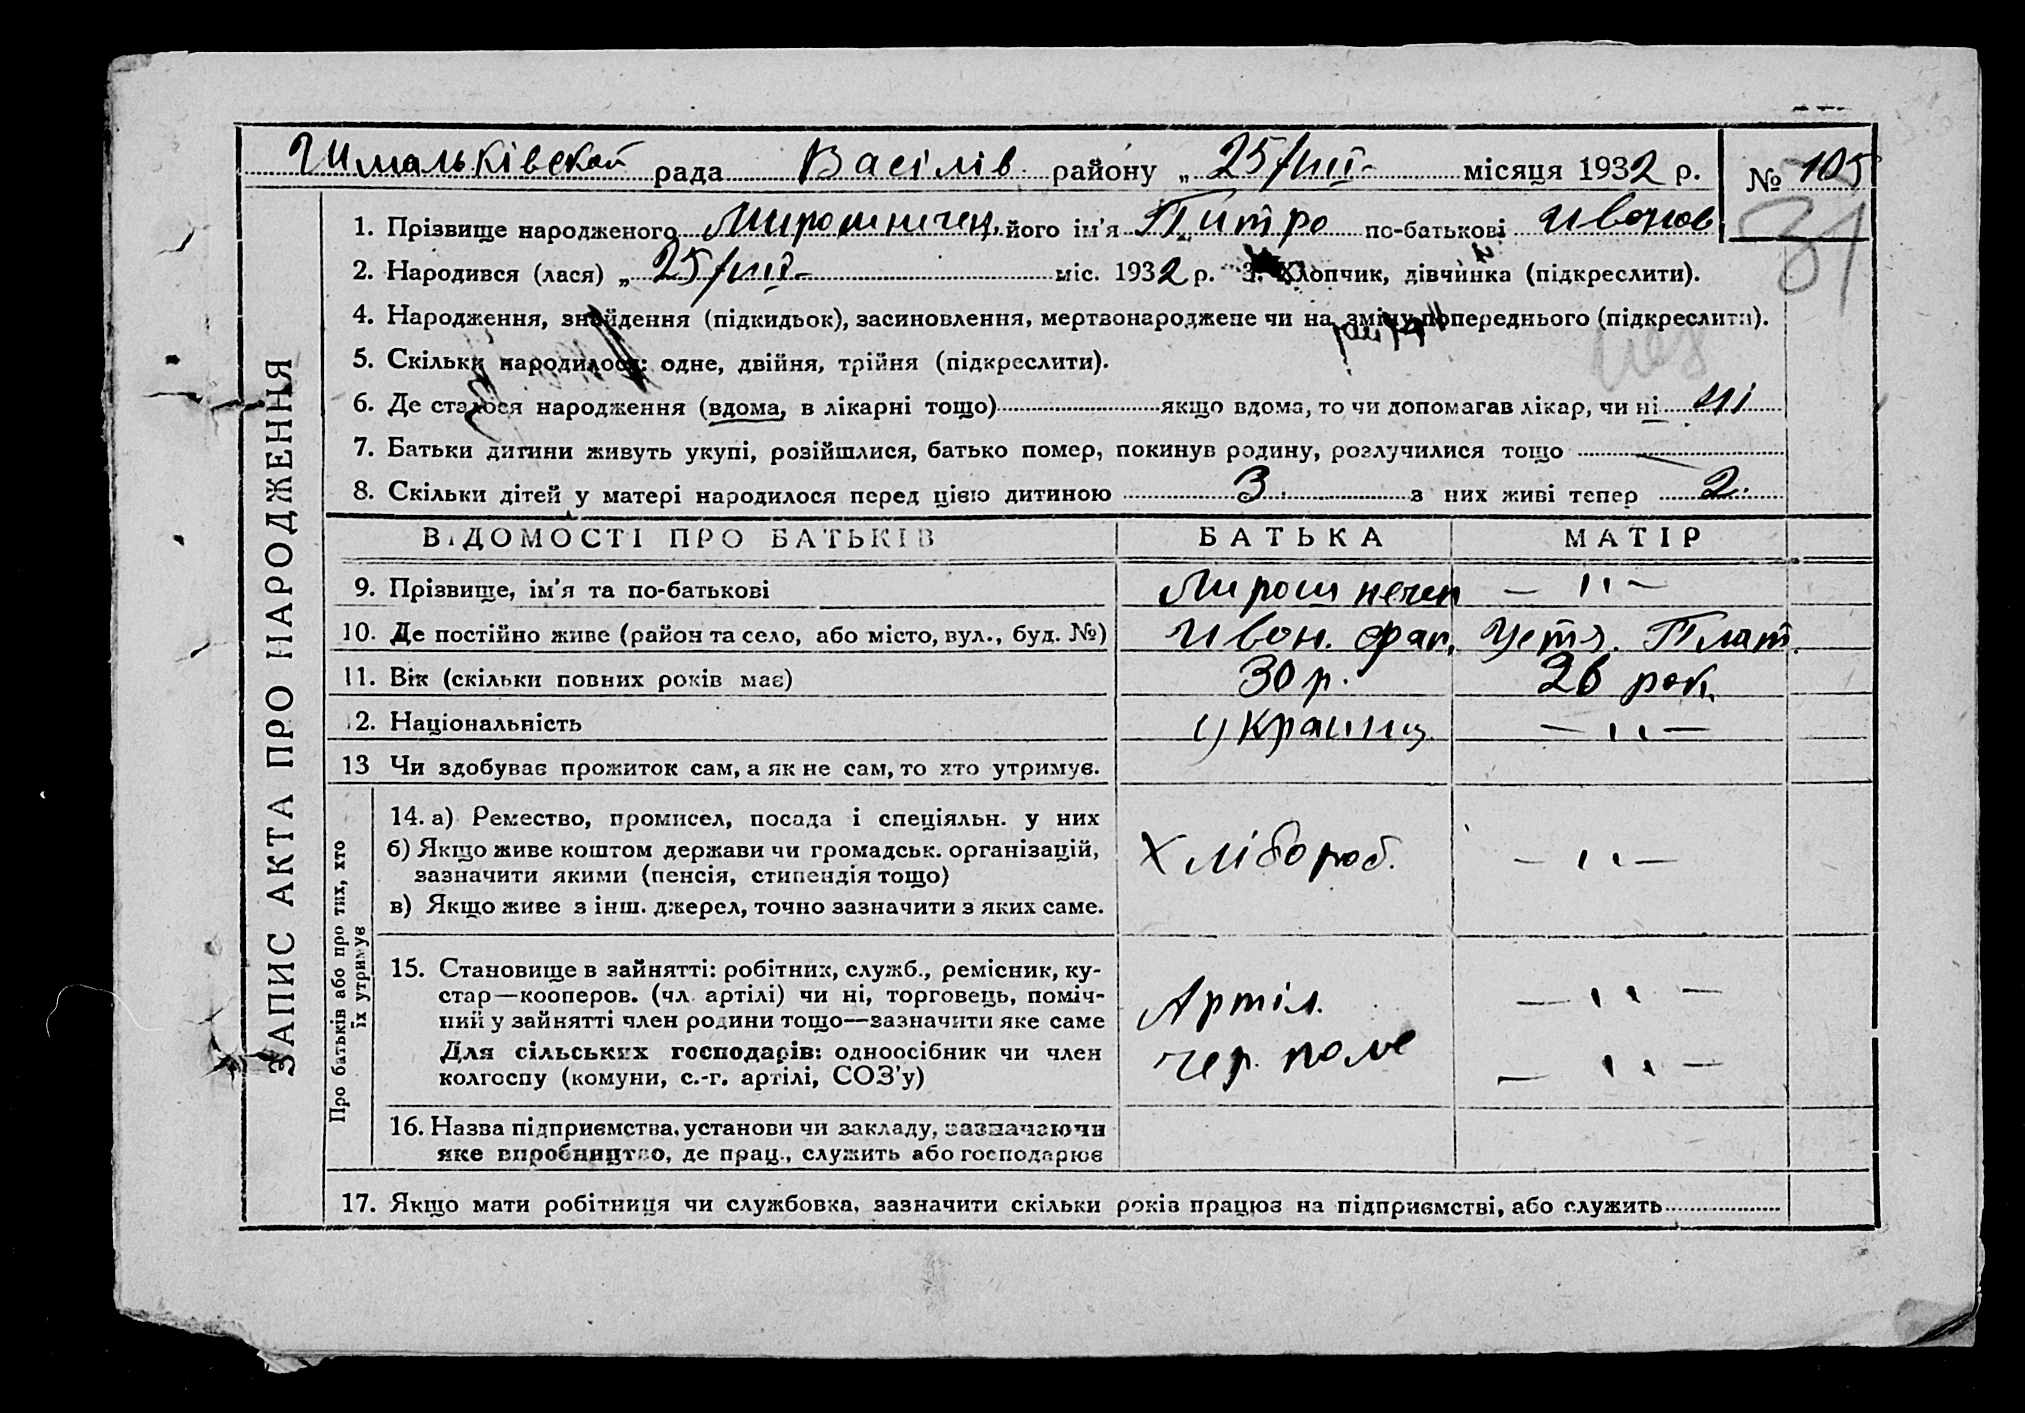 Шмальківской рада Васілів району „ 25/VIII- місяця 1932 р. № 105
1. Прізвище народженого Мирошничен. його ім'я Питро по-батькові Ивонов
31
2. Народився (лася) „ 25/VIII- міс. 1932 р. 3. Хлопчик, дівчинка (підкреслити).
4. Народження, знайдення (підкидьок), засиновлення, мертвонароджене чи на зміну попереднього (підкреслити).
5. Скільки народилося: одне, двійня, трійня (підкреслити).
6. Де сталося народження (вдома, в лікарні тощо) якщо вдома, то чи допомагав лікар, чи ні ні
7. Батьки дитини живуть укупі, розійшлися, батько помер, покинув родину, розлучилися тощо —
8. Скільки дітей у матері народилося перед цією дитиною 3. з них живі тепер 2.
ЗАПИС АКТА ПРО НАРОДЖЕННЯ
ВІДОМОСТІ ПРО БАТЬКІВ БАТЬКА МАТІР
9. Прізвище, ім'я та по-батькові Мирошнечен — '' —
10. Де постійно живе (район та село, або місто, вул., буд. №) Ивон. Фап. Устя. Плат.
11. Вік (скільки повних років має) 30 р. 26 рок.
12. Національність украинц — '' —
13 Чи здобуває прожиток сам, а як не сам, то хто утримує.
Про батьків або про тих, хто
їх утримує
14. а) Ремество, промисел, посада і спеціяльн. у них
б) Якщо живе коштом держави чи громадськ. організацій,
зазначити якими (пенсія, стипендія тощо)
в) Якщо живе з інш. джерел, точно зазначити з яких саме.
Хлібороб. — '' —
15. Становище в зайнятті: робітних, служб., ремісник, ку-
стар—кооперов. (чл. артілі) чи ні, торговець, поміч-
ний у зайнятті член родини тощо—зазначити яке саме
Для сільських господарів: одноосібник чи член
колгоспу (комуни, с.-г. артілі, СОЗ'у)
Артіл. — '' —
чер. поле — '' —
16. Назва підприємства, установи чи закладу, зазначаючи
яке виробництво, де прац., служить або господарює
17. Якщо мати робітниця чи службовка, зазначити скільки років працює на підприємстві, або служить